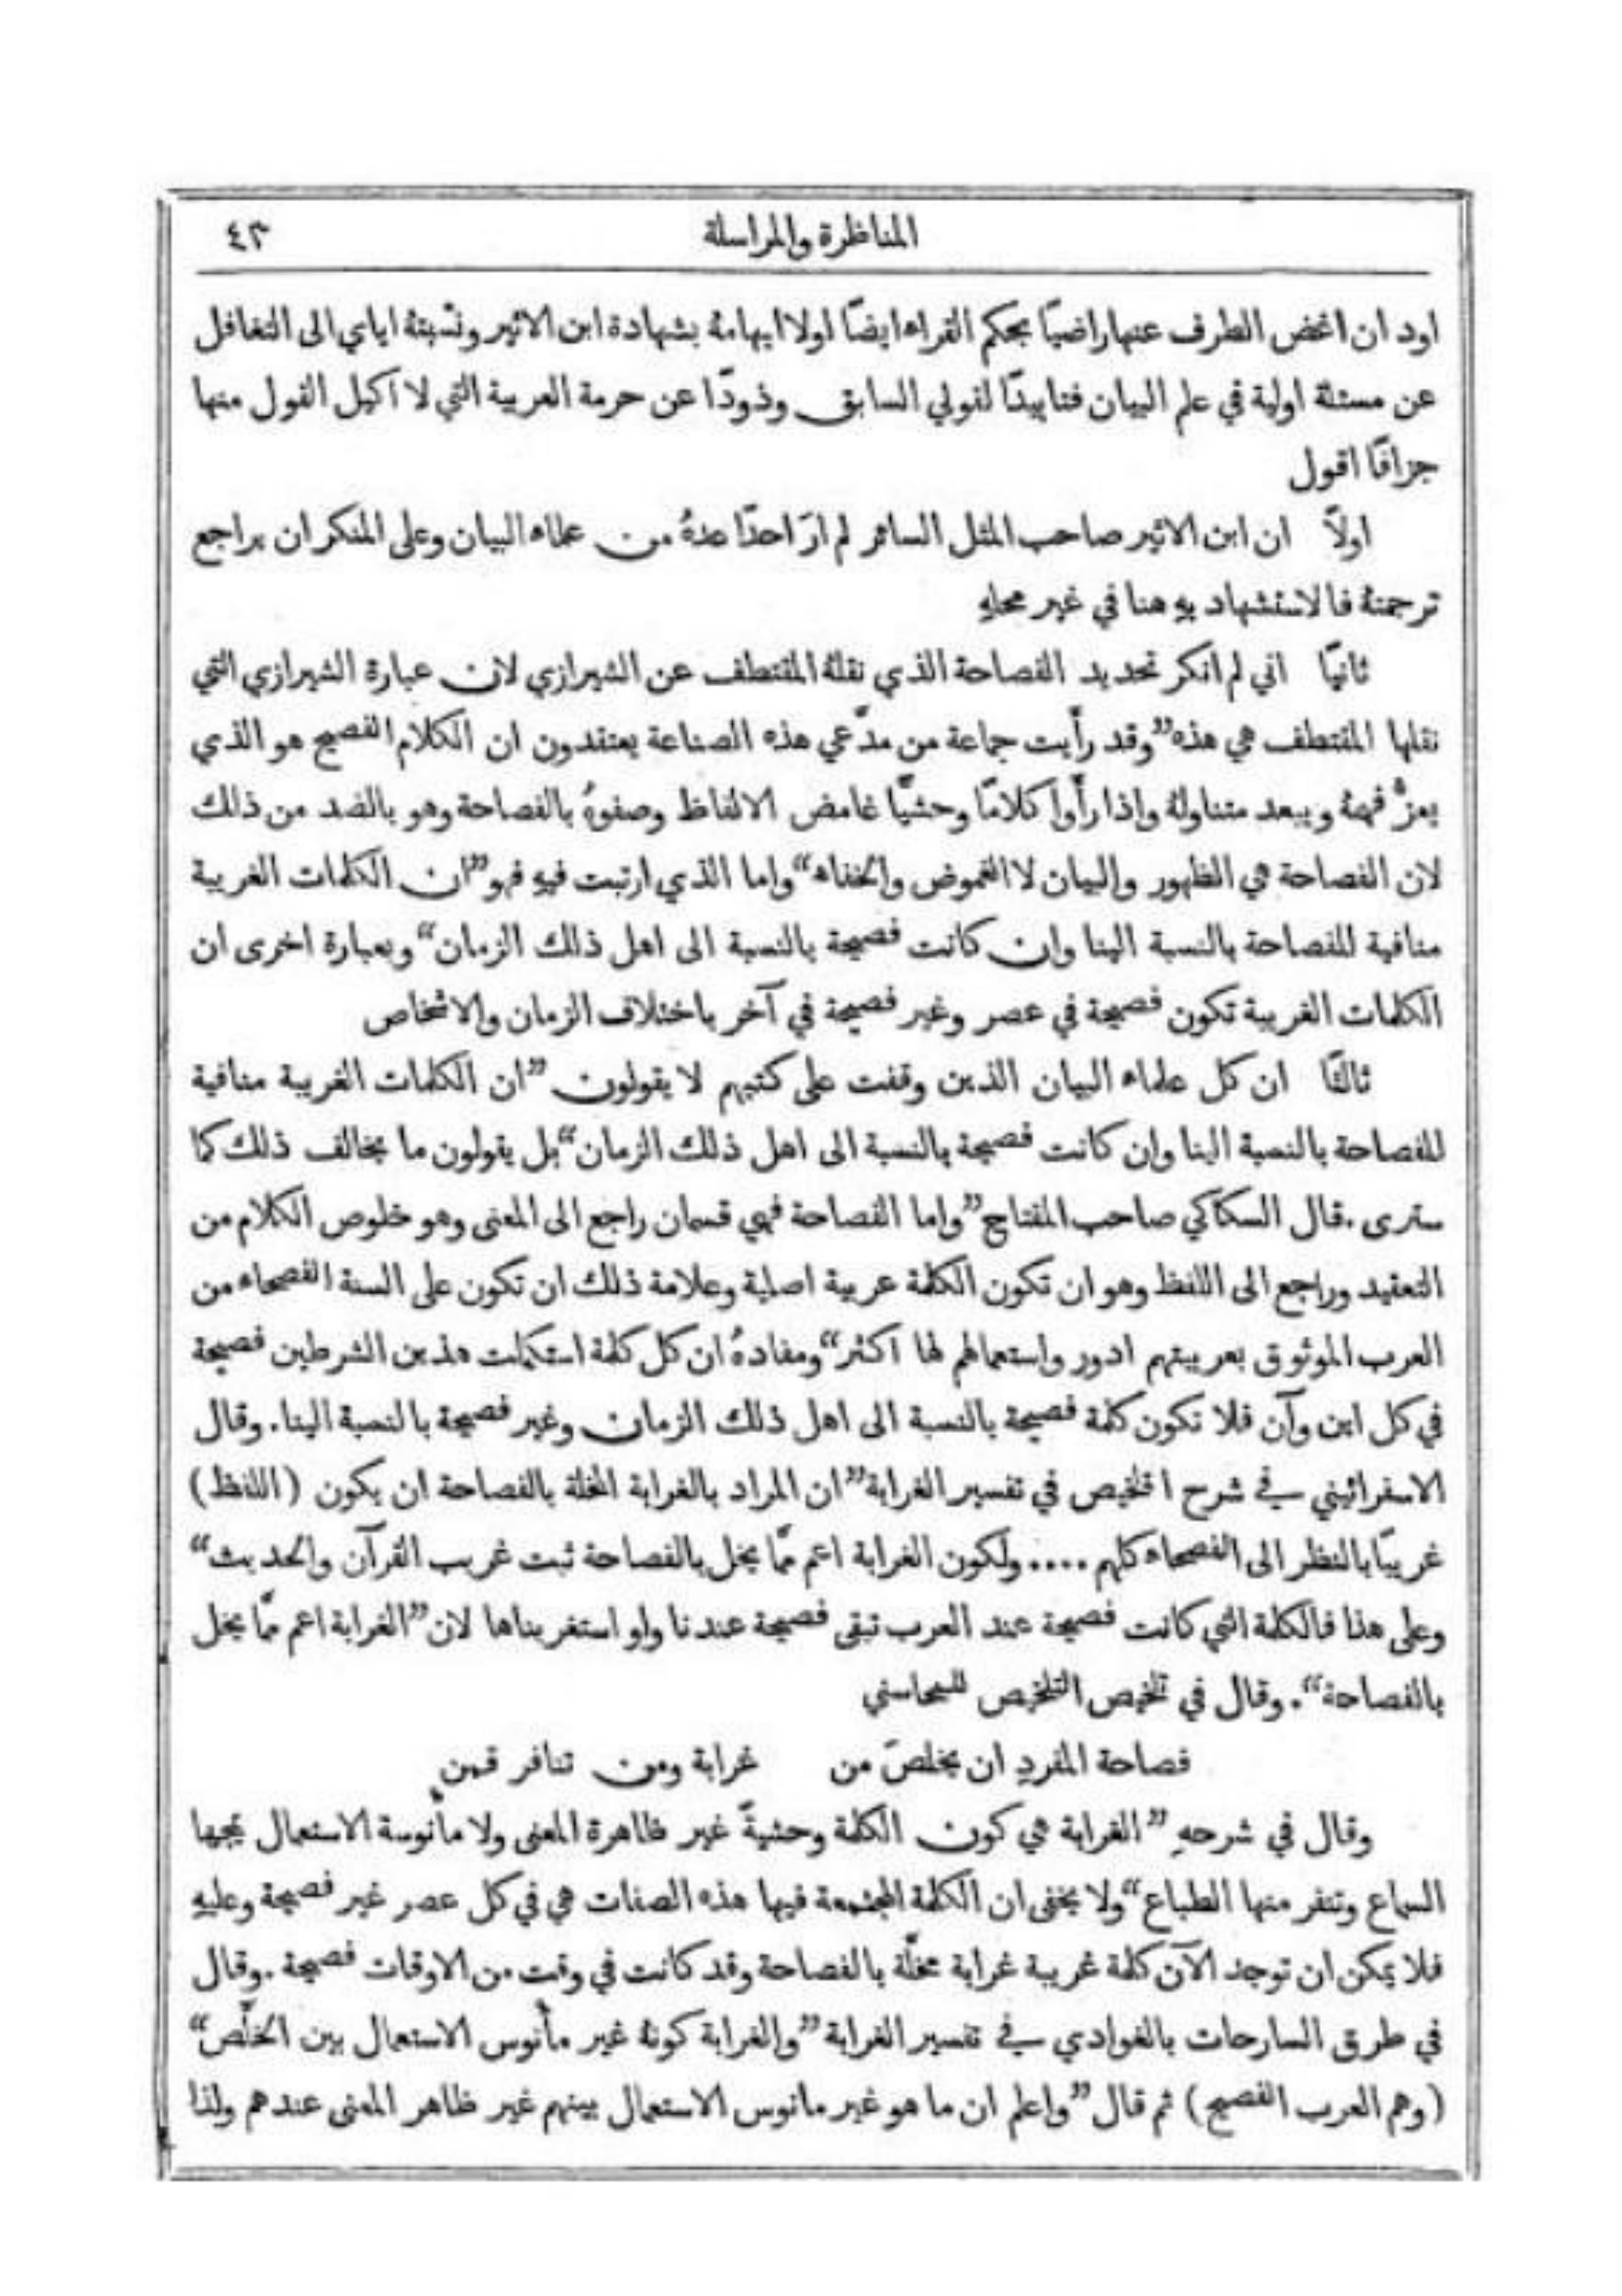 المناظرة والمراسلة ٤٣
اود ان اغض الطرف عنها راضيًا بحكم القراء ايضًا لولا ايهامهُ بشهادة ابن الاثير ونسبتهُ اياي الى التغافل
عن مسئلة اولية في علم البيان فتاييدًا لقولي السابق وذودًا عن حرمة العربية التي لا اكيل القول منها
جزافًا اقول
اولاً ان ابن الاثير صاحب المثل السائر لم ارَ احدًا عدهُ من علماء البيان وعلى المنكر ان يراجع
ترجمتهُ فالاستشهاد بهِ هنا في غير محلهِ
ثانيًا اني لم انكر تحديد الفصاحة الذي نقلهُ المقتطف عن الشيرازي لان عبارة الشيرازي التي
نقلها المقتطف هي هذه ”وقد رأيت جماعة من مدّعي هذه الصناعة يعتقدون ان الكلام الفصيح هو الذي
يعزُّ فهمهُ ويبعد متناولهُ واذا رأوا كلامًا وحشيًّا غامض الالفاظ وصفوهُ بالفصاحة وهو بالضد من ذلك
لان الفصاحة هي الظهور والبيان لا الغموض والخفاء“ واما الذي ارتبت فيهِ فهو ”ان الكلمات الغريبة
منافية للفصاحة بالنسبة الينا وان كانت فصيحة بالنسبة الى اهل ذلك الزمان“ وبعبارة اخرى ان
الكلمات الغريبة تكون فصيحة في عصر وغير فصيحة في آخر باختلاف الزمان والاشخاص
ثالثًا ان كل علماء البيان الذين وقفت على كتبهم لا يقولون ”ان الكلمات الغريبة منافية
للفصاحة بالنسبة الينا وان كانت فصيحة بالنسبة الى اهل ذلك الزمان“ بل يقولون ما يخالف ذلك كما
سترى. قال السكاكي صاحب المفتاح ”واما الفصاحة فهي قسمان راجع الى المعنى وهو خلوص الكلام من
التعقيد وراجع الى اللفظ وهو ان تكون الكلمة عربية اصلية وعلامة ذلك ان تكون على السنة الفصحاء من
العرب الموثوق بعربيتهم ادور واستعمالهم لها اكثر“ ومفادهُ ان كل كلمة استكملت هذين الشرطين فصيحة
في كل اين وآن فلا تكون كلمة فصيحة بالنسبة الى اهل ذلك الزمان وغير فصيحة بالنسبة الينا. وقال
الاسفرائيني في شرح التلخيص في تفسير الغرابة ”ان المراد بالغرابة المخلة بالفصاحة ان يكون (اللفظ)
غريبًا بالنظر الى الفصحاء كلهم .... ولكون الغرابة اعم ممّا يخل بالفصاحة ثبت غريب القرآن والحديث“
وعلى هذا فالكلمة التي كانت فصيحة عند العرب تبقى فصيحة عندنا ولو استغربناها لان ”الغرابة اعم ممّا يخل
بالفصاحة“. وقال في تلخيص التلخيص للمحاسني
فصاحة المفردِ ان يخلصَ من غرابة ومن تنافر قمن
وقال في شرحهِ ”الغرابة هي كون الكلمة وحشيةً غير ظاهرة المعنى ولا مأنوسة الاستعمال يمجها
السماع وتنفر منها الطباع“ ولا يخفى ان الكلمة المجتمعة فيها هذه الصفات هي في كل عصر غير فصيحة وعليهِ
فلا يمكن ان توجد الآن كلمة غريبة غرابة مخلّة بالفصاحة وقد كانت في وقت من الاوقات فصيحة. وقال
في طرق السارحات بالغوادي في تفسير الغرابة ”والغرابة كونهُ غير مأنوس الاستعمال بين الخلّص“
(وهم العرب الفصيح) ثم قال ”واعلم ان ما هو غير مانوس الاستعمال بينهم غير ظاهر المعنى عندهم ولذا